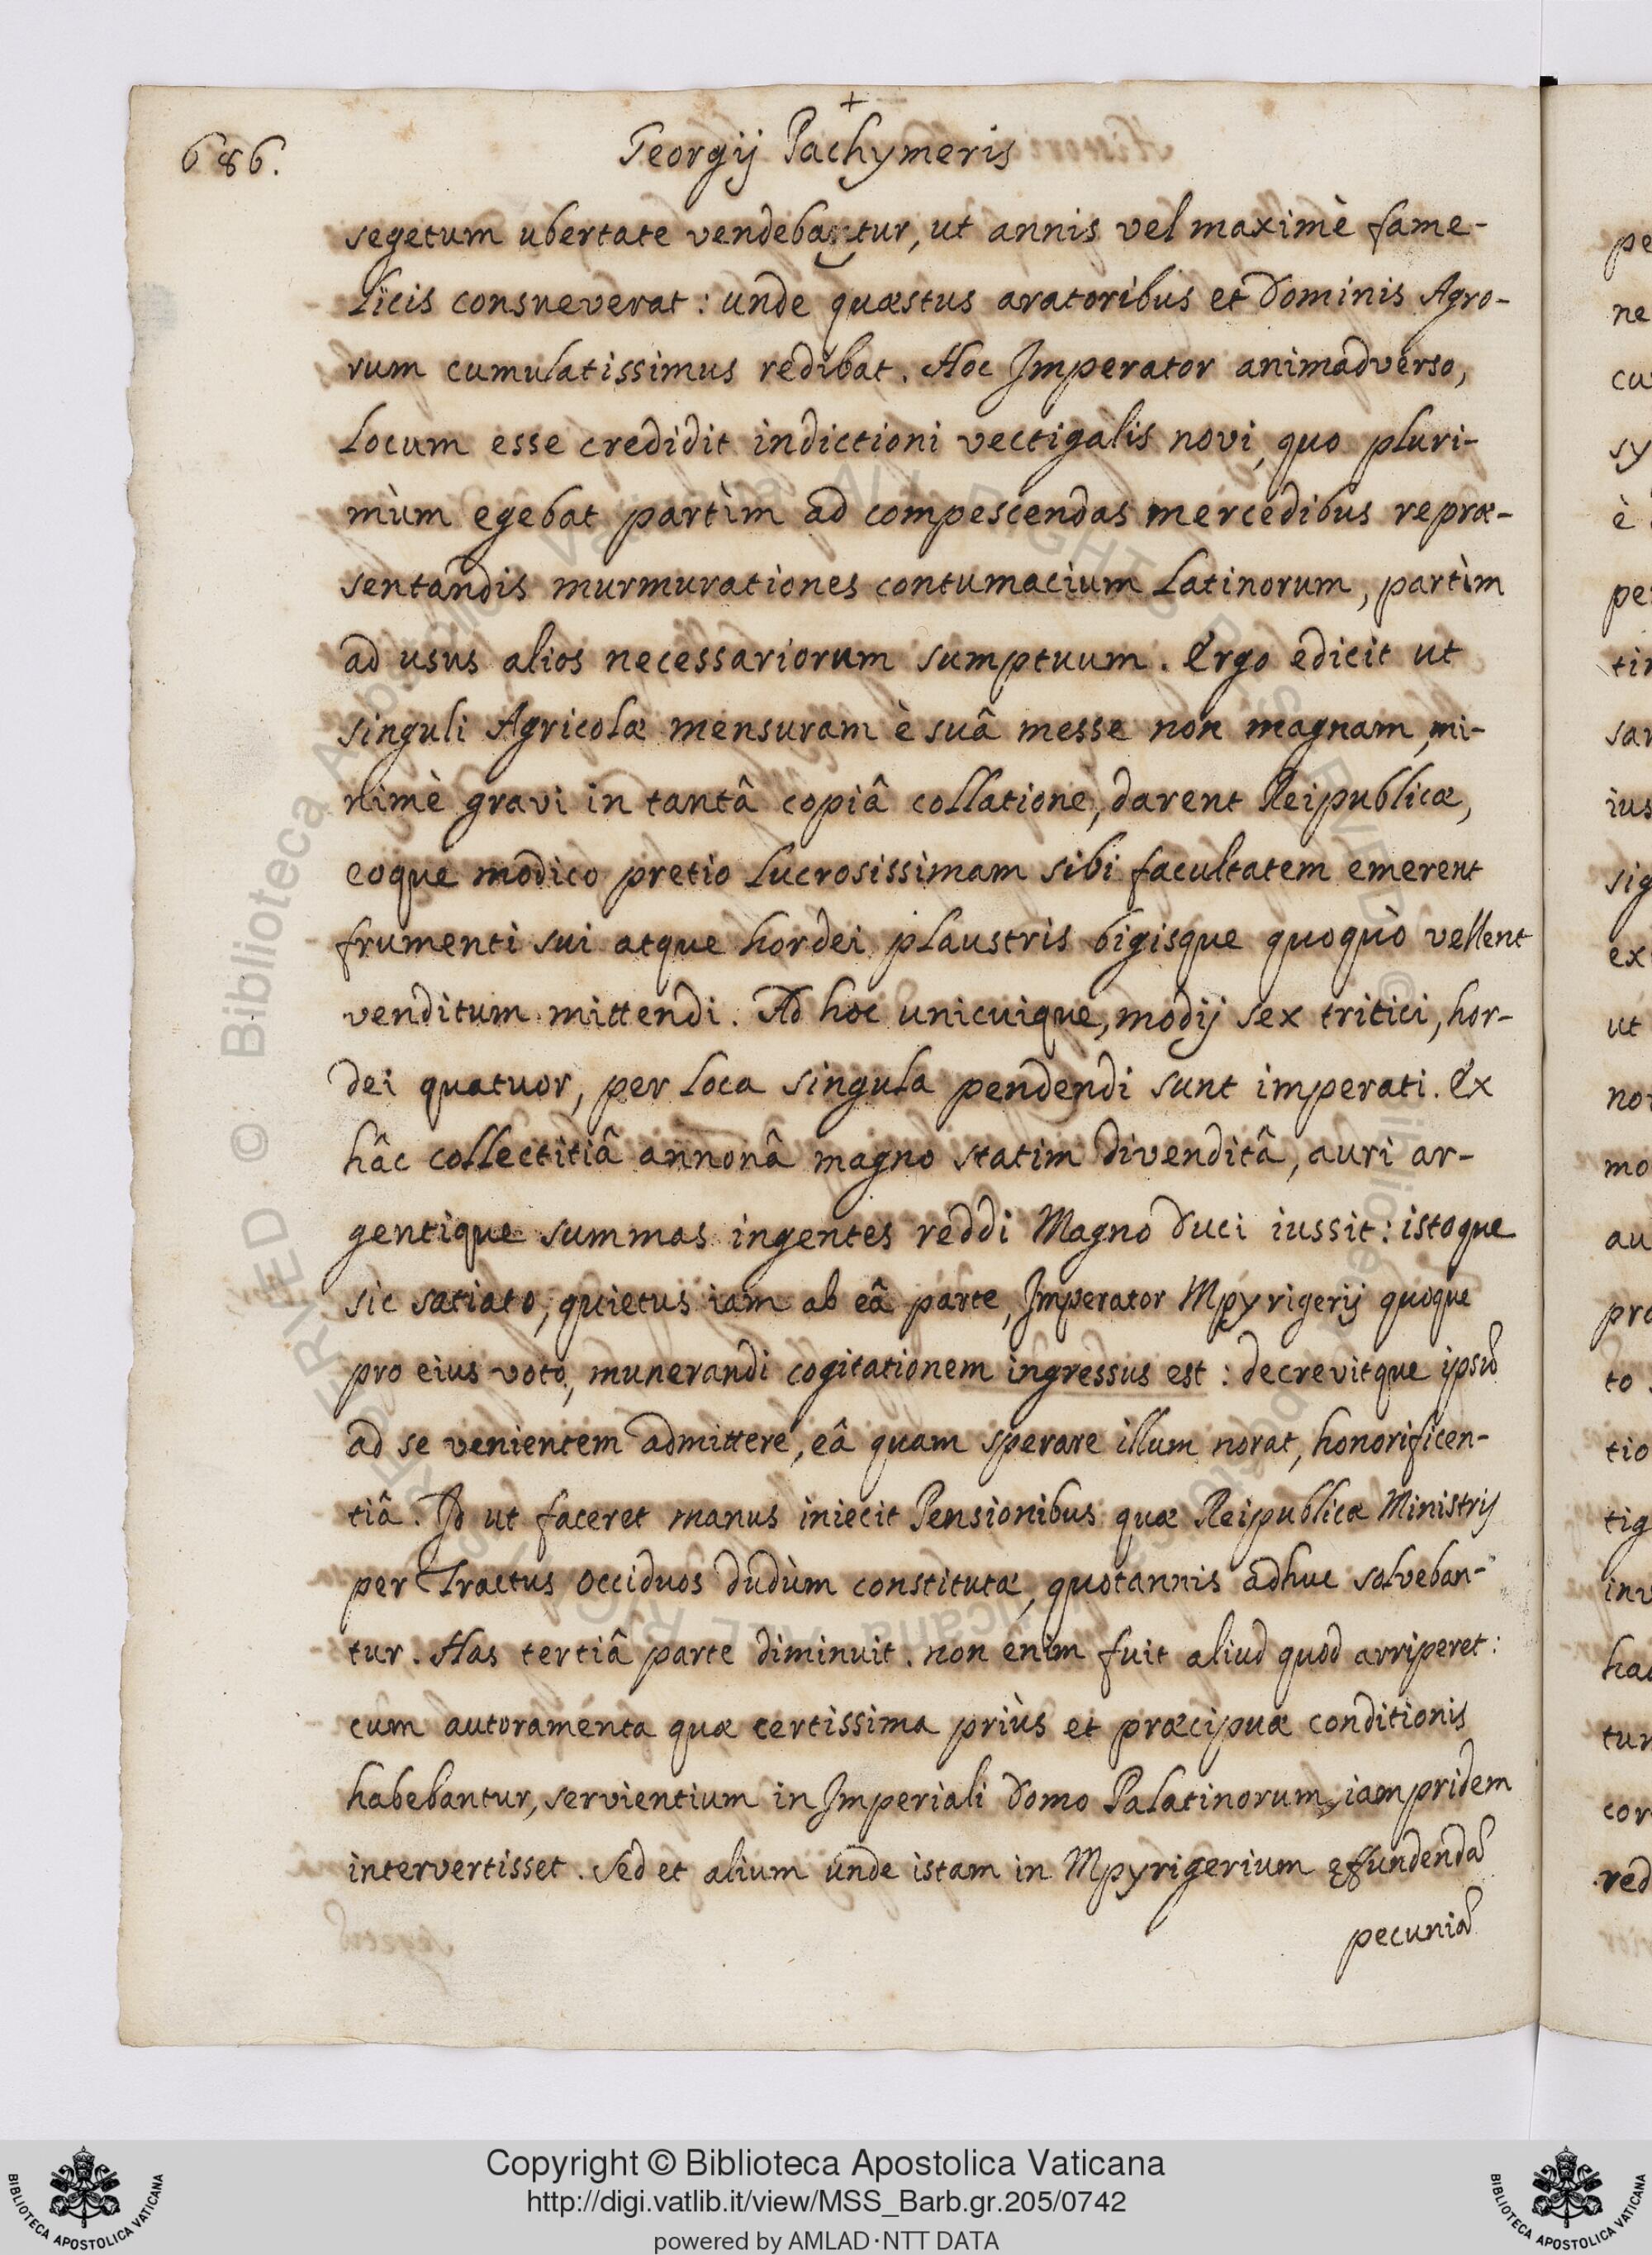 686.
+
Georgij Pachymeris
segetum ubertate vendebantur, ut annis vel maximè fame-
licis consueverat: unde quæstus aratoribus et Dominis Agro-
rum cumulatissimus redibat. Hoc Imperator animadverso,
Locum esse credidit indictioni vectigalis novi, quo pluri-
mùm egebat partìm ad compescendas mercedibus repræ-
sentandis murmurationes contumacium Latinorum, partìm
ad usus alios necessariorum sumptuum. Ergo edicit ut
singuli Agricolæ mensuram è suâ messe non magnam, mi-
nimè gravi in tantâ copiâ collatione, darent Reipublicæ,
eoque modico pretio Lucrosissimam sibi facultatem emerent
frumenti sui atque hordei plaustris bigisque quoquò vellent
venditum mittendi. Ad hoc unicuique, modij sex tritici, hor-
dei quatuor, per Loca singula pendendi sunt imperati. Ex
hâc collectitiâ annonâ magno statim divenditâ, auri ar-
gentique summas ingentes reddi Magno Duci iussit: istoque
sic satiato, quietus iam ab eâ parte, Imperator Mpyrigerij quoque
pro eius voto, munerandi cogitationem ingressus est: decrevitque ipsũ
ad se venientem admittere, eâ quam sperare illum norat, honorificen-
tiâ. Id ut faceret manus iniecit Pensionibus quæ Reipublicæ Ministris
per Tractus Occiduos dudùm constitutæ, quotannis adhuc solveban-
tur. Has tertiâ parte diminuit. non enim fuit aliud quod arriperet:
cum autoramenta quæ certissima priùs et præcipuæ conditionis
habebantur, servientium in Imperiali Domo Palatinorum, iampridem
intervertisset. Sed et alium unde istam in Mpyrigerium effundendã
pecuniã
pe
ne
cu
sy
è
pe
tin
sar
ius
sig
ex
ut
no
mo
au
pro
to
tio
tig
inv
hac
tur
cor
red
© Biblioteca Apostolica Vaticana ALL RIGHTS RESERVED © Biblioteca Apostolica Vaticana ALL RIGHTS RESERVED
BIBLIOTECA APOSTOLICA VATICANA
Copyright © Biblioteca Apostolica Vaticana
http://digi.vatlib.it/view/MSS_Barb.gr.205/0742
powered by AMLAD·NTT DATA
BIBLIOTECA APOSTOLICA VATICANA